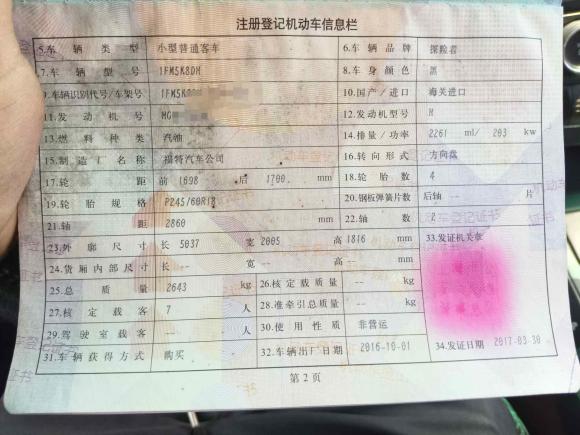 注册登记机动车信息栏
5.车辆类型 小型普通客车 6.车辆品牌 探险者
7.车辆型号 1FM5K8DH 8.车身颜色 黑
9.车辆识别代号/车架号 1FM5K8 10.国产/进口 海关进口
11.发动机号 MG 12.发动机型号 H
13.燃料种类 汽油 14.排量/功率 2261 ml/ 203 kw
15.制造厂名称 福特汽车公司 16.转向形式 方向盘
17.轮距 前 1698 后 1700 mm 18.轮胎数 4
19.轮胎规格 P245/60R18 20.钢板弹簧片数 后轴 -- 片
21.轴距 2860 mm 22.轴数 2
23.外廓尺寸 长 5037 宽 2005 高 1816 mm 33.发证机关章
24.货厢内部尺寸 长 -- 宽 -- 高 -- mm
25.总质量 2643 kg 26.核定载质量 -- kg
27.核定载客 7 人 28.准牵引总质量 -- kg
29.驾驶室载客 -- 人 30.使用性质 非营运
31.车辆获得方式 购买 32.车辆出厂日期 2016-10-01 34.发证日期 2017-03-30
第 2 页